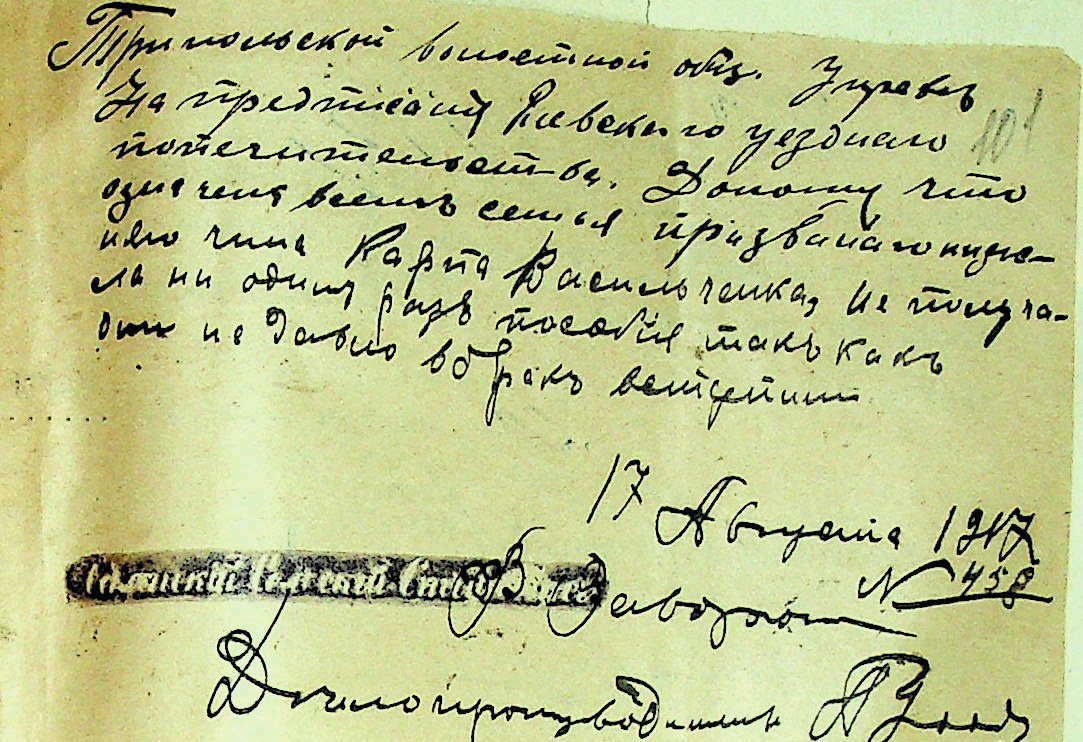 Трипольской волостной общ. Управѣ
На предписаніѧ Киевского уездного
попечительства. Доношу что
означеня всемъ семья призванаго ниж-
няго чина Карпа Васильченка, не получа-
ла ни один разъ пособія такъ какъ
они не давно в бракъ вступили
101
17 Августа 1917
N 458
Сельскій Староста
Делопроизводитель